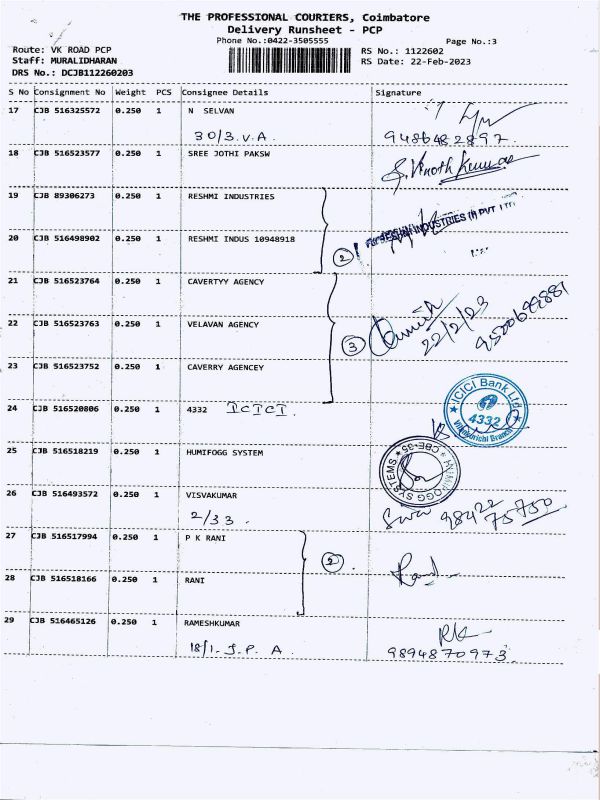 THE PROFESSIONAL COURIERS, Coimbatore
Delivery Runsheet - PCP
Phone No.:0422-3505555
Page No.:3
Route: VK ROAD PCP
RS No.: 1122602
Staff: MURALIDHARAN
RS Date: 22-Feb-2023
DRS No.: DCJB112260203
S No Consignment No Weight PCS Consignee Details Signature
17 CJB 516325572 0.250 1 N SELVAN
30/3. V. A. 9486482897.
18 CJB 516523577 0.250 1 SREE JOTHI PAKSW
S. Vinoth Kumar
19 CJB 89306273 0.250 1 RESHMI INDUSTRIES
RESHMI INDUSTRIES (I) PVT LTD
20 CJB 516498902 0.250 1 RESHMI INDUS 10948918
2
21 CJB 516523764 0.250 1 CAVERTYY AGENCY
22 CJB 516523763 0.250 1 VELAVAN AGENCY
22/2/23
3
23 CJB 516523752 0.250 1 CAVERRY AGENCEY
24 CJB 516520806 0.250 1 4332 ICICI.
ICICI Bank Ltd
4332
25 CJB 516518219 0.250 1 HUMIFOGG SYSTEM
HUMIFOGG SYSTEMS CBE-35
26 CJB 516493572 0.250 1 VISVAKUMAR
2/33. 98422
75750
27 CJB 516517994 0.250 1 P K RANI
2.
28 CJB 516518166 0.250 1 RANI
29 CJB 516465126 0.250 1 RAMESHKUMAR
RK
18/1. J. P. A. 9894870973.